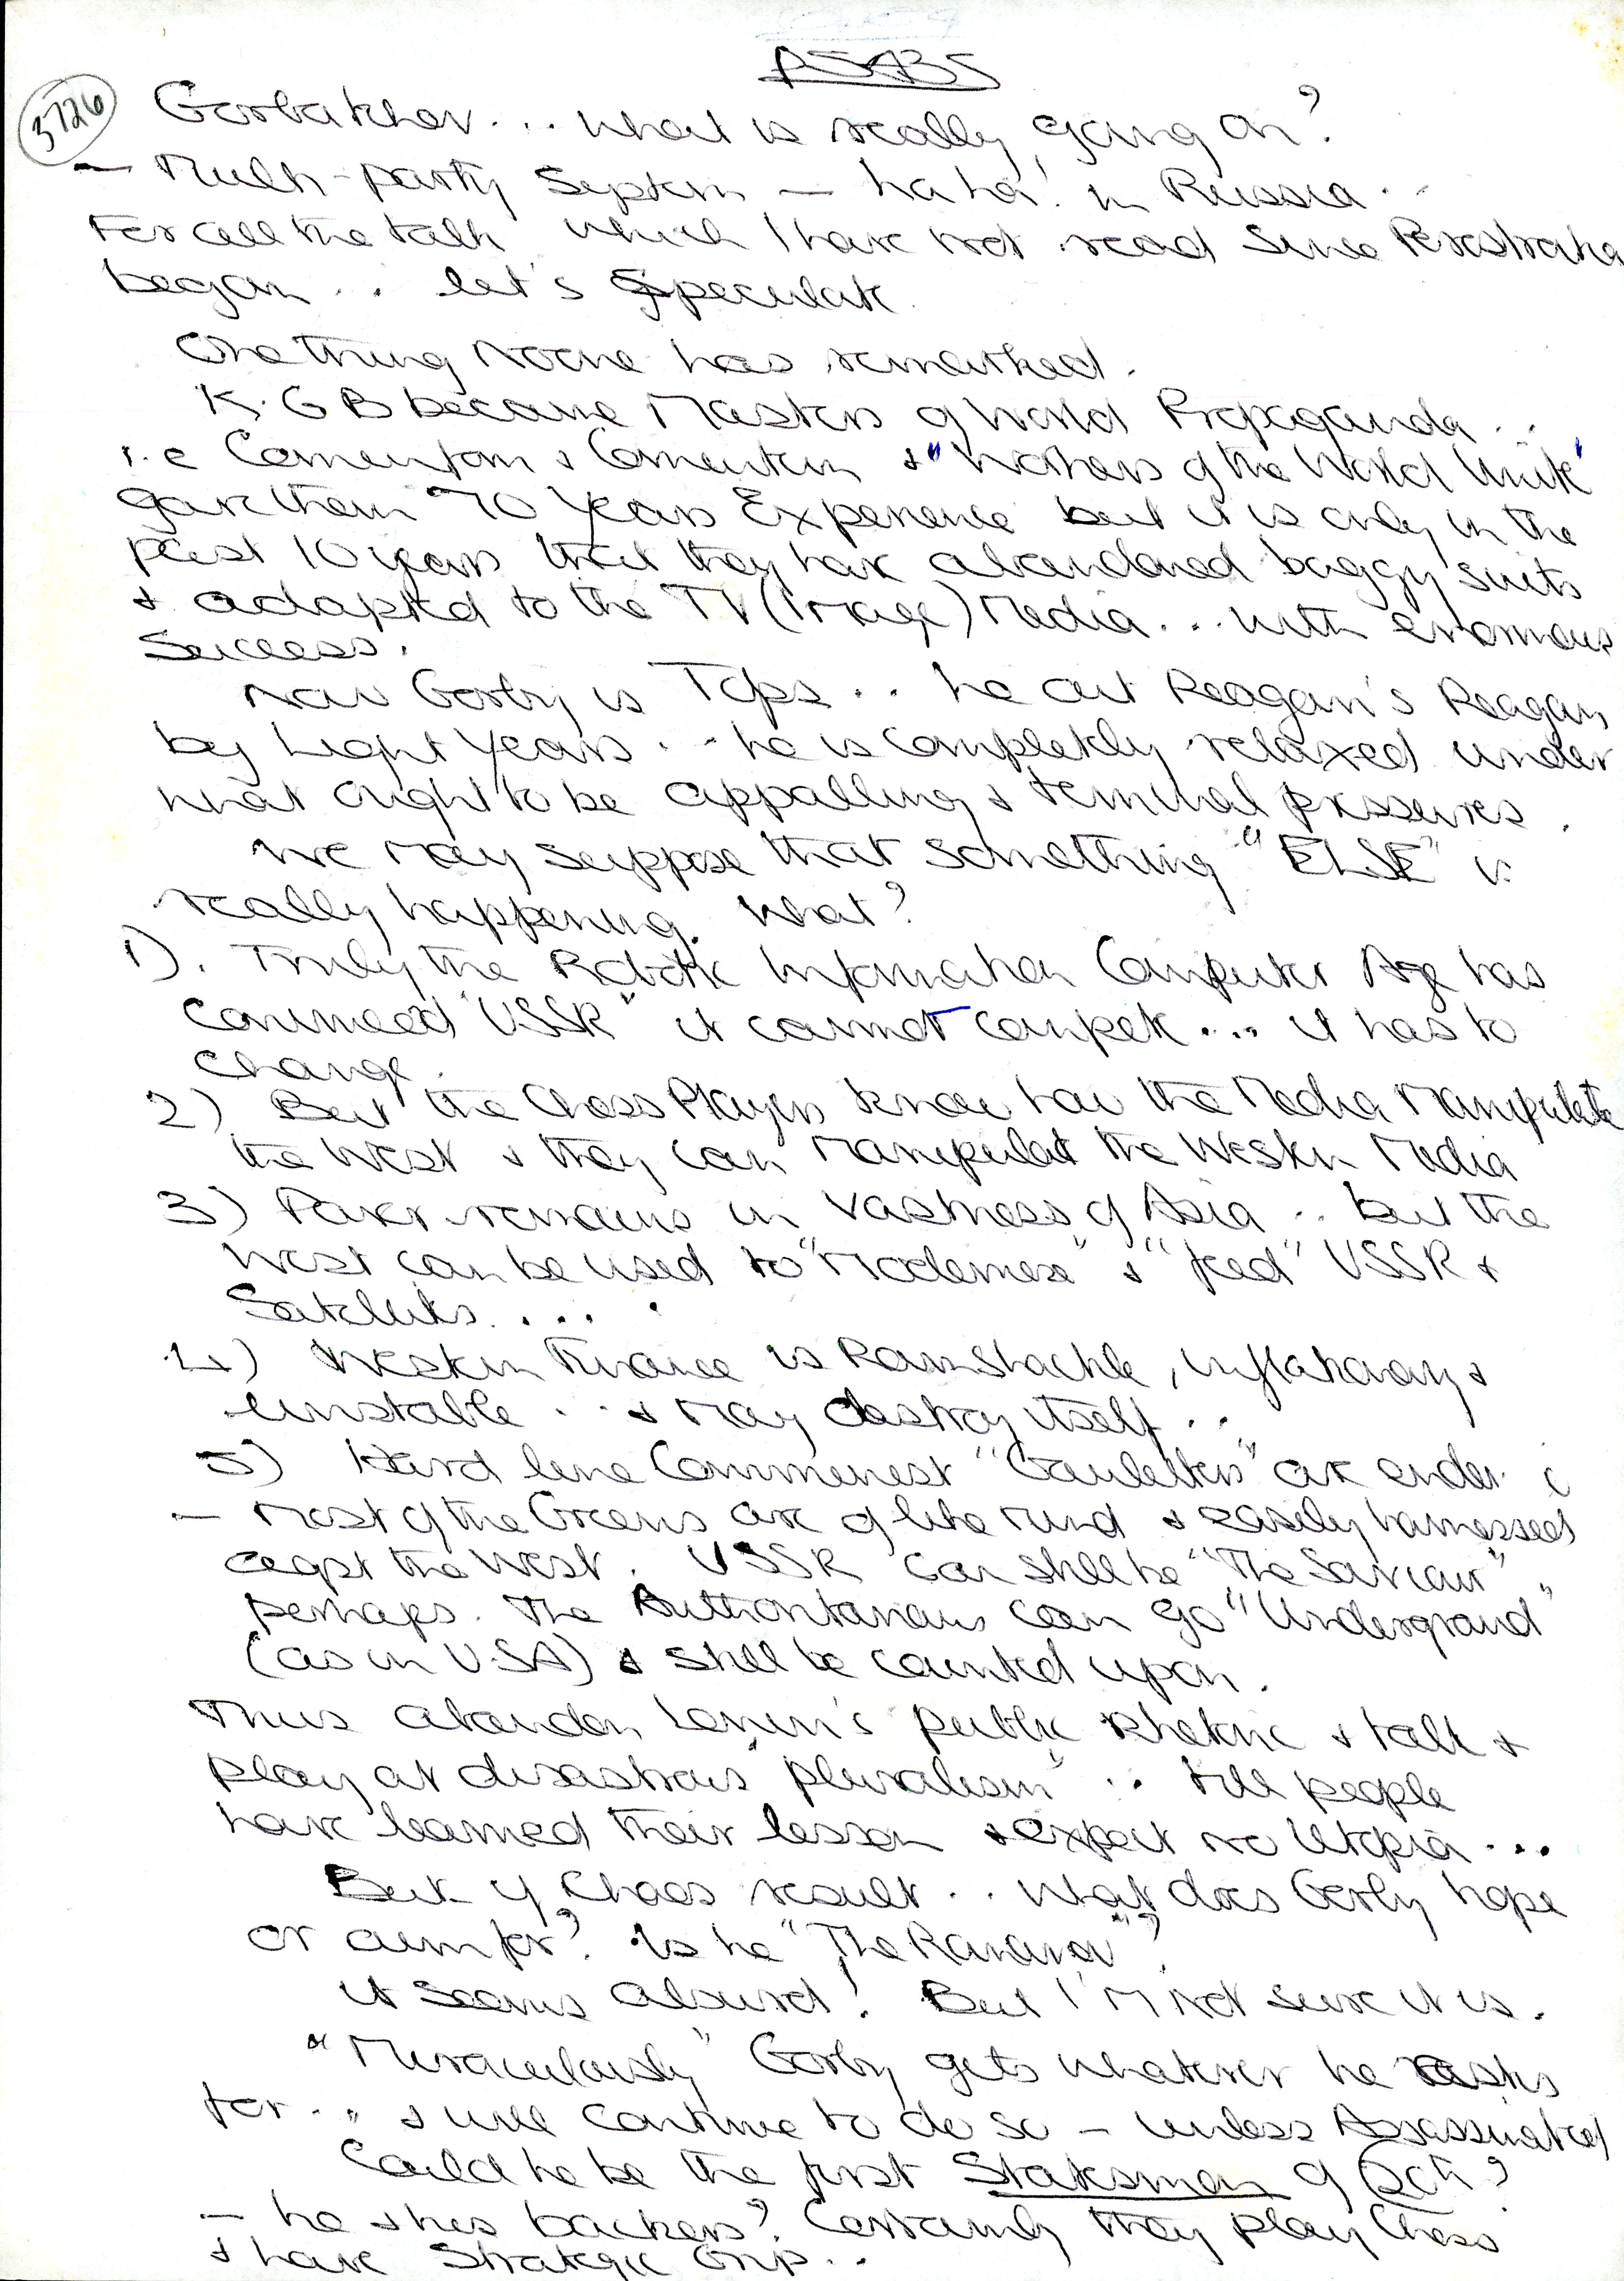 3726
Gorbatchev... what is really going on?
- Multi-party System - ha ha! in Russia..
For all the talk which I have not read since Perestroika
began.. let's speculate.
One thing Noone has remarked.
K.G.B became Masters of World Propaganda...
i.e Comenform & Comentern & "Workers of the World Unite"
gave them 70 years Experience but it is only in the
past 10 years that they have abandoned baggy suits
& adapted to the TV (Image) Media... with enormous
Success.
Now Gorby is Tops.. he out Reagan's Reagan
by Light Years.. he is completely relaxed under
what ought to be appalling & terminal pressures.
We may suppose that something "ELSE" is
really happening. What?
1). Truly the Robotic Information Computer Age has
convinced "USSR" it cannot compete.... it has to
change.
2) But the Chess Players know how the Media Manipulate
the West & they can Manipulate the Western Media
3) Power remains in Vastness of Asia.. but the
West can be used to "Modernise" & "feed" USSR &
Satellites....
4) Western Finance is Ramshackle, inflationary &
unstable... & may destroy itself..
5) Hard line Communist "Gauleiters" are ended
- Most of the Greens are of like mind & easily harnessed
agst the West. USSR can still be "The Saviour"
perhaps. The Authoritarians can go "Underground"
(as in USA) & still be counted upon.
Thus abandon Lenin's public Rhetoric & talk &
play at disastrous "pluralism".. till people
have learned their lesson & expect no Utopia...
But if Chaos result.. What does Gorby hope
or aim for? Is he "The Romanov"?
It seems absurd! But I'm not sure it is.
"Miraculously" Gorby gets whatever he asks
for... & will continue to do so - unless Assassinated
Could he be the first Statesman of 20th?
- he & his backers? Certainly they play Chess
& have Strategic Grip..